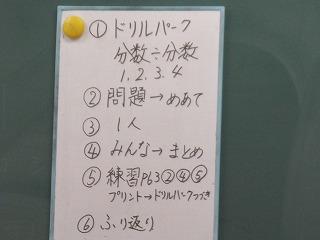 ①ドリルパーク
分数÷分数
1.2.3.4
②問題→めあて
③1人
④みんな→まとめ
⑤練習P63②④⑤
プリント→ドリルパークつづき
⑥ふり返り